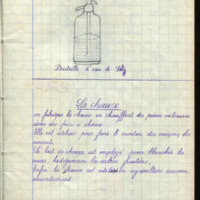 Bouteille d'eau de Seltz
La chaux
on fabrique la chaux en chauffant des pierres calcaires
dans des fours à chaux
Elle est utilisée pour faire le mortier des maçons, du
ciment
Le lait de chaux est employé pour blanchir les
murs, badigeonner les arbres fruitiers,
Enfin la chaux est utilisée en agriculture comme
amendement.